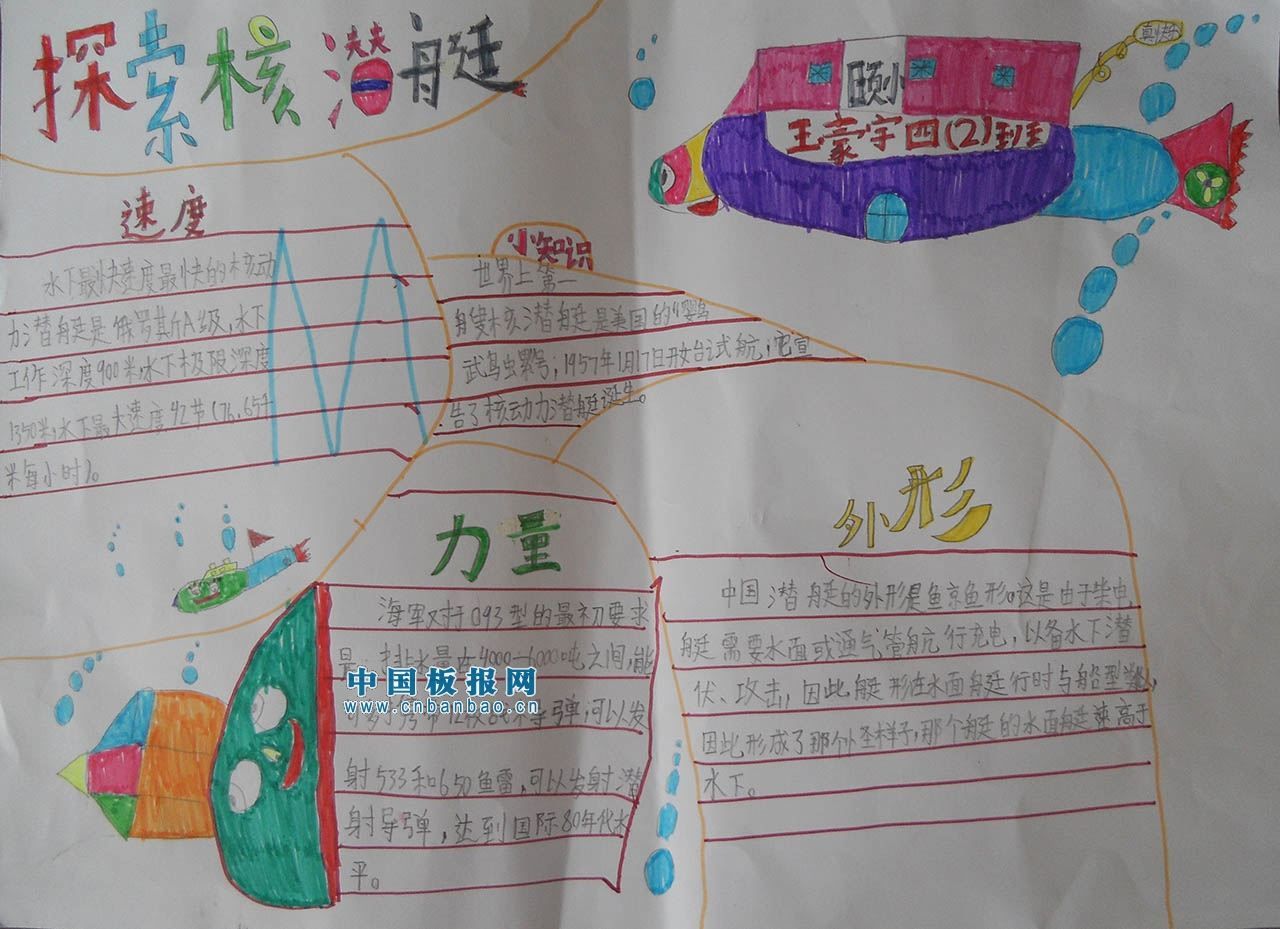 探索核潜艇
真快
颐小
王豪宇四(2)班
速度
水下最快速度最快的核动
力潜艇是俄罗斯A级,水下
工作深度900米,水下极限深度
1350米,水下最大速度42节(76.65千
米每小时)。
小知识
世界上第一
艘核潜艇是美国的“鹦鸟
武鸟虫累号,1957年1月17日开始试航,它宣
告了核动力潜艇诞生。
力量
海军对于093型的最初要求
是:排水量在4000-6000吨之间,能
导弹,可以发
射533和650鱼雷,可以发射潜
射导弹,达到国际80年代水
平。
外形
中国潜艇的外形是鱼京鱼形。这是由于柴电
艇需要水面或通气管航行充电,以备水下潜
伏、攻击,因此艇形在水面艇行时与船型
因此形成了那个外圣样子,那个艇的水面艇速高于
水下。
中国板报网
www.cnbanbao.cn